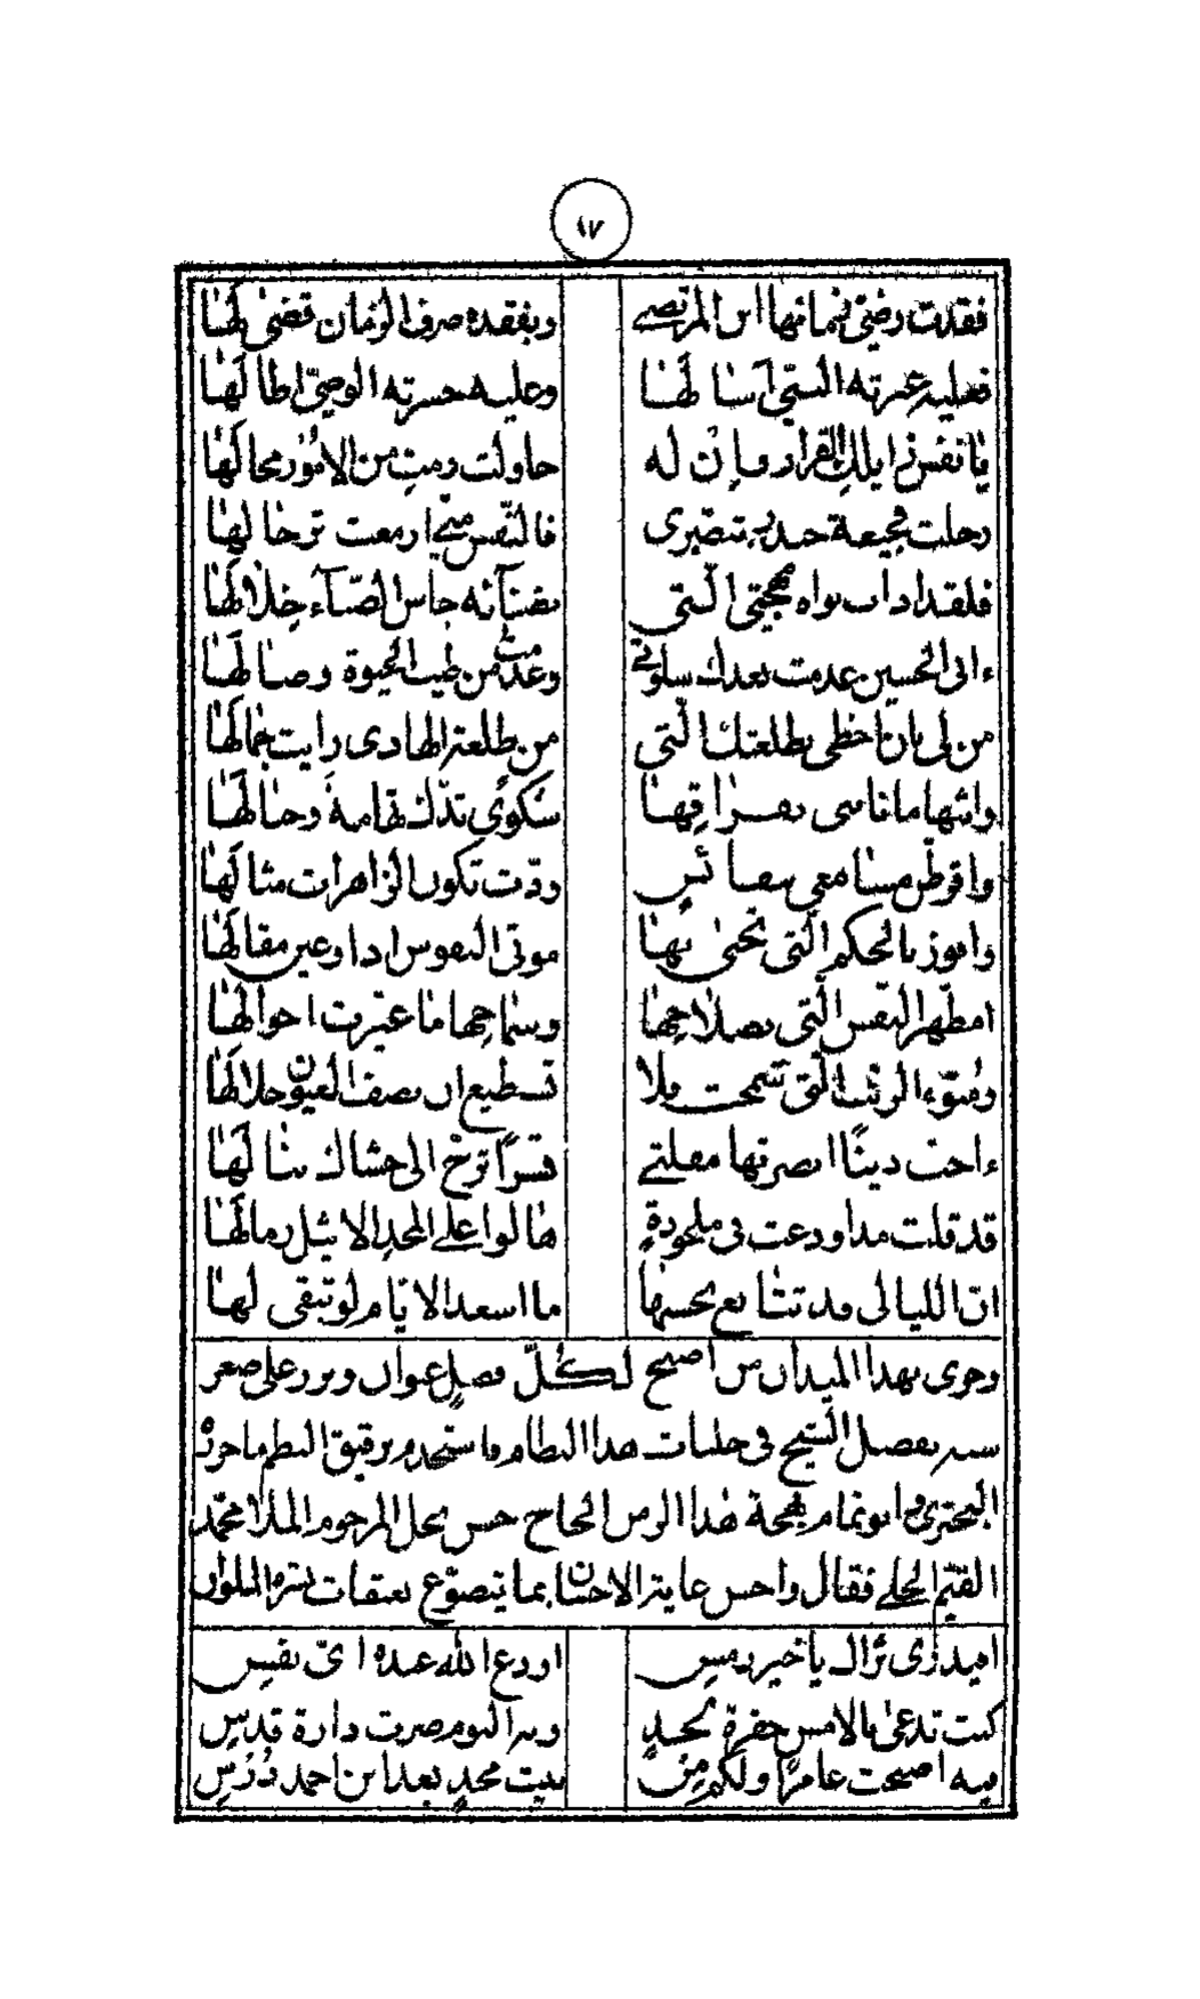 ١٧
فقدت رضيّ زمانها ابن المرتضى وبفقده صرف الزمان قضى لها
فعليه عبرته الستي آسا لها وعليه حسرته الوصيّ اطا لها
يا نفس اين لك القرار وان له حاولت رمت من الامور محا لها
رحلت فجيعة تصبّرى فالنفس منّى ازمعت ترحا لها
فلقد اذاب نواه مهجتي الّتي بضنائه جاس الضنآء خلا لها
ءابي الحسين عدمت بعدك سلوتى وعدمت من طيب الحيوة وصا لها
من لي بان احظى بطلعتك الّتي من طلعة الهادى رايت جما لها
وابثها ما نابني بفراقها شكوى تدكّ تهامة وجبا لها
واقرّط مسامعي ودّت تكون الزاهرات مثا لها
وافوز بالحكم الّتي تحيى بها موتى النفوس اذا وعين مقا لها
امطهر النفس الّتي بصلاحها وسماحها ما غيّرت احوا لها
ومبوّء الرتب الّتي سمحت فلا تسطيع ان تصف العيون جلا لها
ءاخت دينًا ابصرتها مقلتي قسرًا ترخ الى حشاك نبا لها
قد قلت مذ اودعت في ملحودةٍ ها لوا على المجد الاثيل رما لها
انّ الليالي قد تتابع بحسنها ما اسعد الايّام لو تبقى لها
وجرى بهذا الميدان من اصبح لكلّ فصلٍ عنوان وبرد على صعر
بتفصيل النسيج في حلبات هذا النظام واستخدم برقيق النظم ما حرّر
البحترى وابو تمام بهجة هذا الزمن الحاج حسن نجل المرحوم الملا محمّد
القيّم الحلي فقال واحسن غاية الاحسان بما يتضوّع بعبقات نشره الملوان
اودع الله عنده ايّ نفيس
كنت تدعى بالامس حفرة لحدٍ وبه اليوم صرت دارة قدس
فيه اصبحت عامرًا ولكم من بيت مجدٍ بعد ابن احمد دُرّس